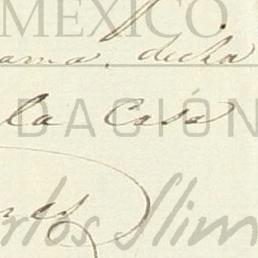 MÉXICO
ama. dicha
la Casa
DACIÓN
nes
arlos Slim